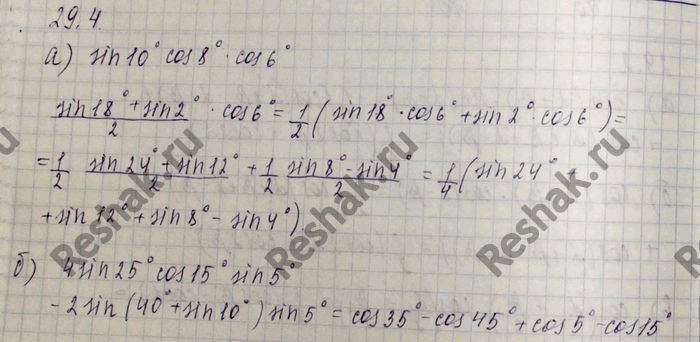 29.4.
а) sin10° cos8° · cos6°
(sin18° + sin2°)/2 · cos6° = 1/2 (sin18° · cos6° + sin2° · cos6°) =
= 1/2 (sin24° + sin12°)/2 + 1/2 (sin8° - sin4°)/2 = 1/4 (sin24° +
+ sin12° + sin8° - sin4°)
б) 4sin25° cos15° sin5°
- 2sin(40° + sin10°) sin5° = cos35° - cos45° + cos5° - cos15°
Reshak.ru
Reshak.ru
Reshak.ru
Reshak.ru